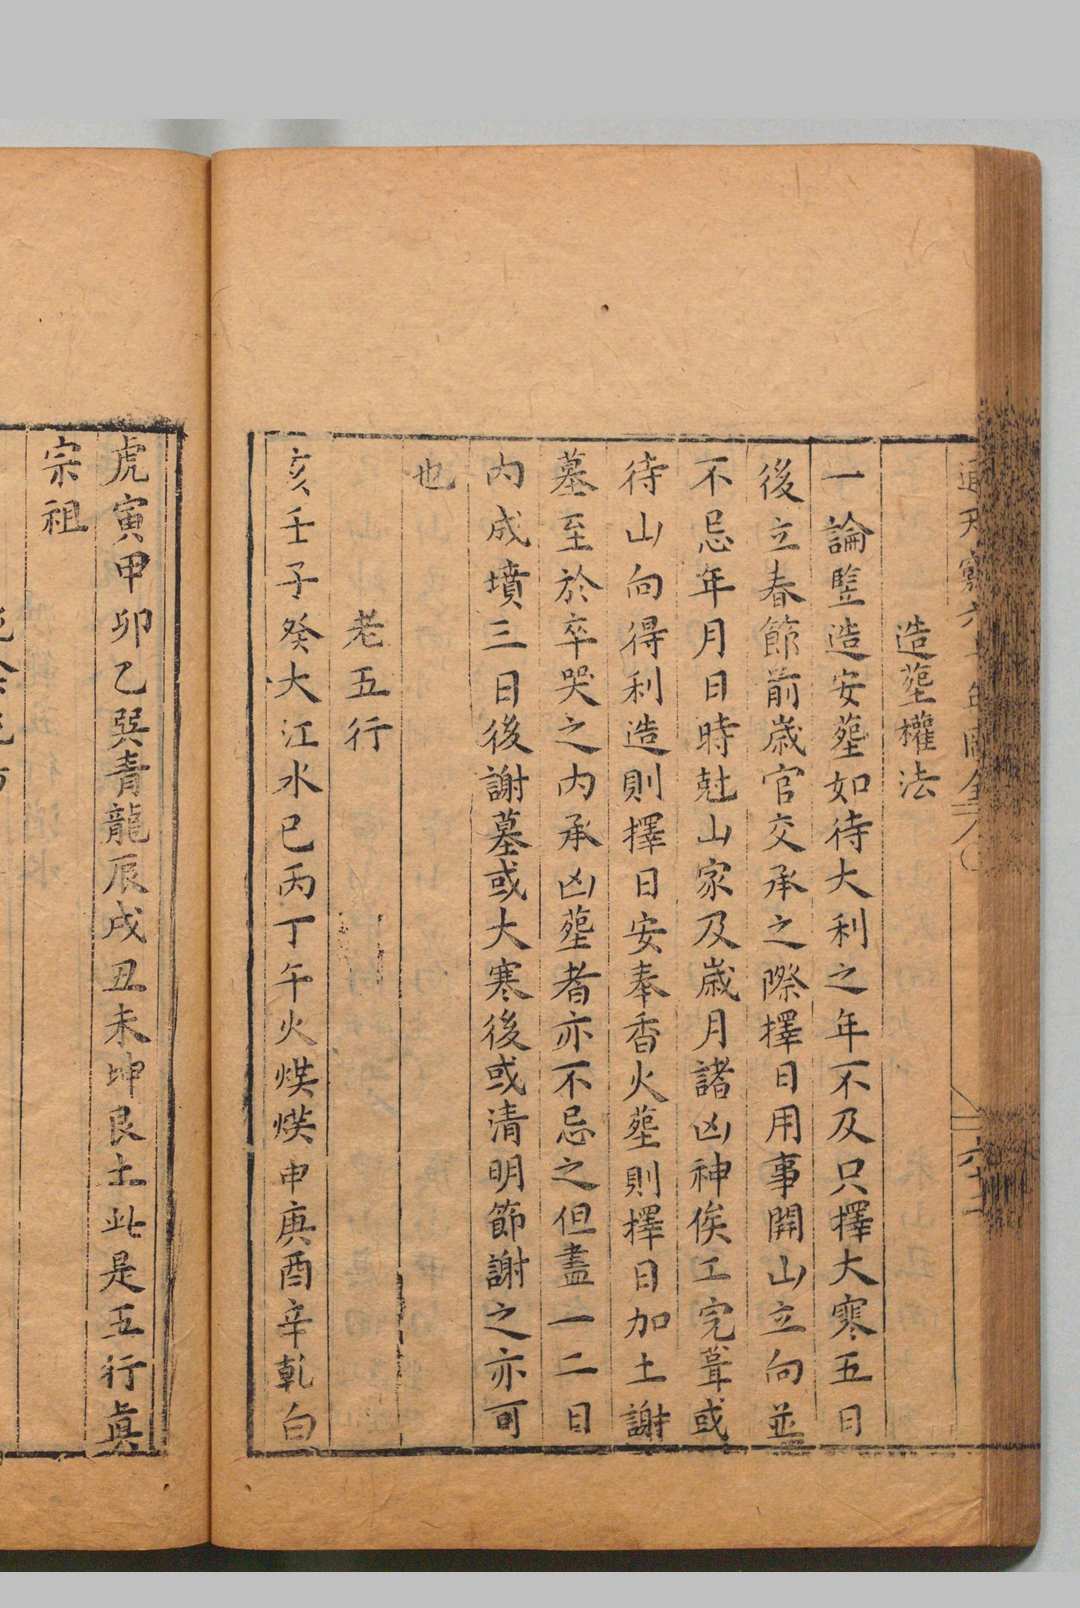 造塟權法
一論竪造安塟如待大利之年不及只擇大寒五日
後立春節前歲官交承之際擇日用事開山立向並
不忌年月日時尅山家及歲月諸凶神俟工完葺或
待山向得利造則擇日安奉香火塟則擇日加土謝
墓至於卒哭之內承凶塟者亦不忌之但盡一二日
內成墳三日後謝墓或大寒後或清明節謝之亦可
也
老五行
亥壬子癸大江水巳丙丁午火煐煐申庚酉辛乾白
虎寅甲卯乙巽青龍辰戌丑未坤艮土此是五行眞
宗祖